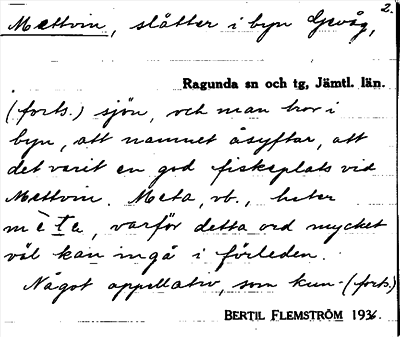 2.
Mettvin, slåtter i byn Gevåg,
Ragunda sn och tg, Jämtl. län.
(forts.) sjön, och man tror i
byn, att namnet åsyftar, att
det varit en god fiskeplats vid
Mettvin. Meta, vb., heter
mèta, varför detta ord mycket
väl kan ingå i förleden.
Något appellativ, som kun- (forts.)
BERTIL FLEMSTRÖM 1936.